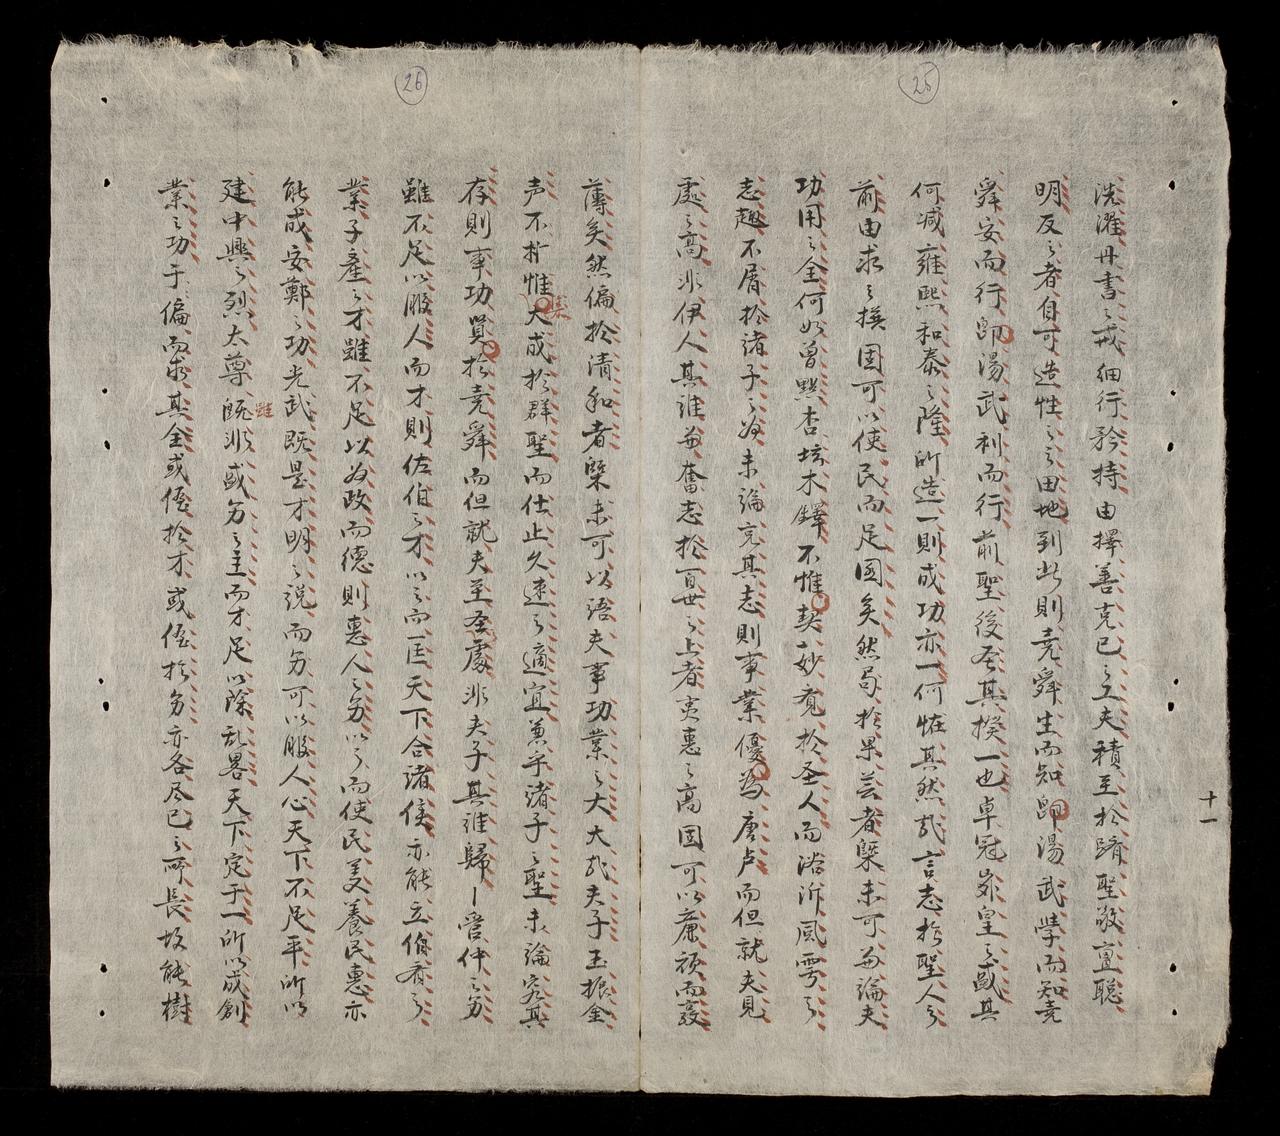 25
洗濯丹書之戒細行矜持由擇善克己之工夫積至於躋聖敬亶聪
明反之者自可造性之之田地到此則尭舜生而知即湯武學而知尭
舜安而行即湯武利而行前聖後圣其揆一也卓冠峩皇之盛其
何减雍熙和泰之隆所造一則成功亦一何怪其然哉言志於聖人之
前由求之撰固可以使民而足國矣然局於果芸者槩未可与論夫
功用之全何如曾點杏坛木鐸不惟契妙覔於圣人而浴沂風雩之
志趣不屑於诸子之為未論究其志則事業優為唐卢而但就夫見
處之高非伊人其誰与奮志於百世之上者夷惠之高固可以亷頑而敦
十一
26
薄矣然偏於清和者槩未可以语夫事功業之大大哉夫子玉振金
声不惟集大成於群聖而仕止久速之適宜兼乎诸子之聖未論究其
存則事功賢於尭舜而但就夫至圣處非夫子其誰歸管仲之
雖不足以服人而才則佐伯之才以之而匡天下合诸侯亦能立伯
業子產之才雖不足以為政而德則惠人之以之而使民美養民惠亦
能成安鄭之功光武既是才明之説而可以服人心天下不足平所以
建中興之烈太尊既雖非盛之主而才足以除乱畧天下定于一所以成創
業之功于偏而求其全或優於才或優於亦各尽己之所長故能樹